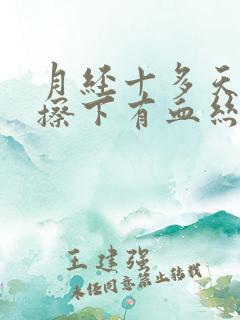 月经十多天
擦下有血丝
王建强
未经同意禁止转载